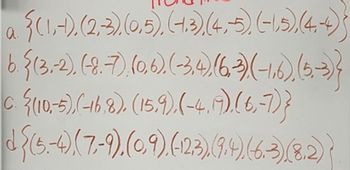 a. {(1,-1), (2,-3), (0,5), (-1,3), (4,-5), (-1,5), (4,-4)}
b. {(3,-2), (-8,-7), (0,6), (-3,4), (6,-3), (-1,6), (5,-3)}
c. {(10,-5), (-16,8), (15,9), (-4,19), (6,-7)}
d. {(5,-4), (7,-9), (0,9), (-12,3), (9,4), (-6,-3), (8,2)}